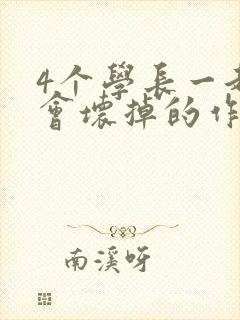 4个學長一
會壞掉的作
南溪呀